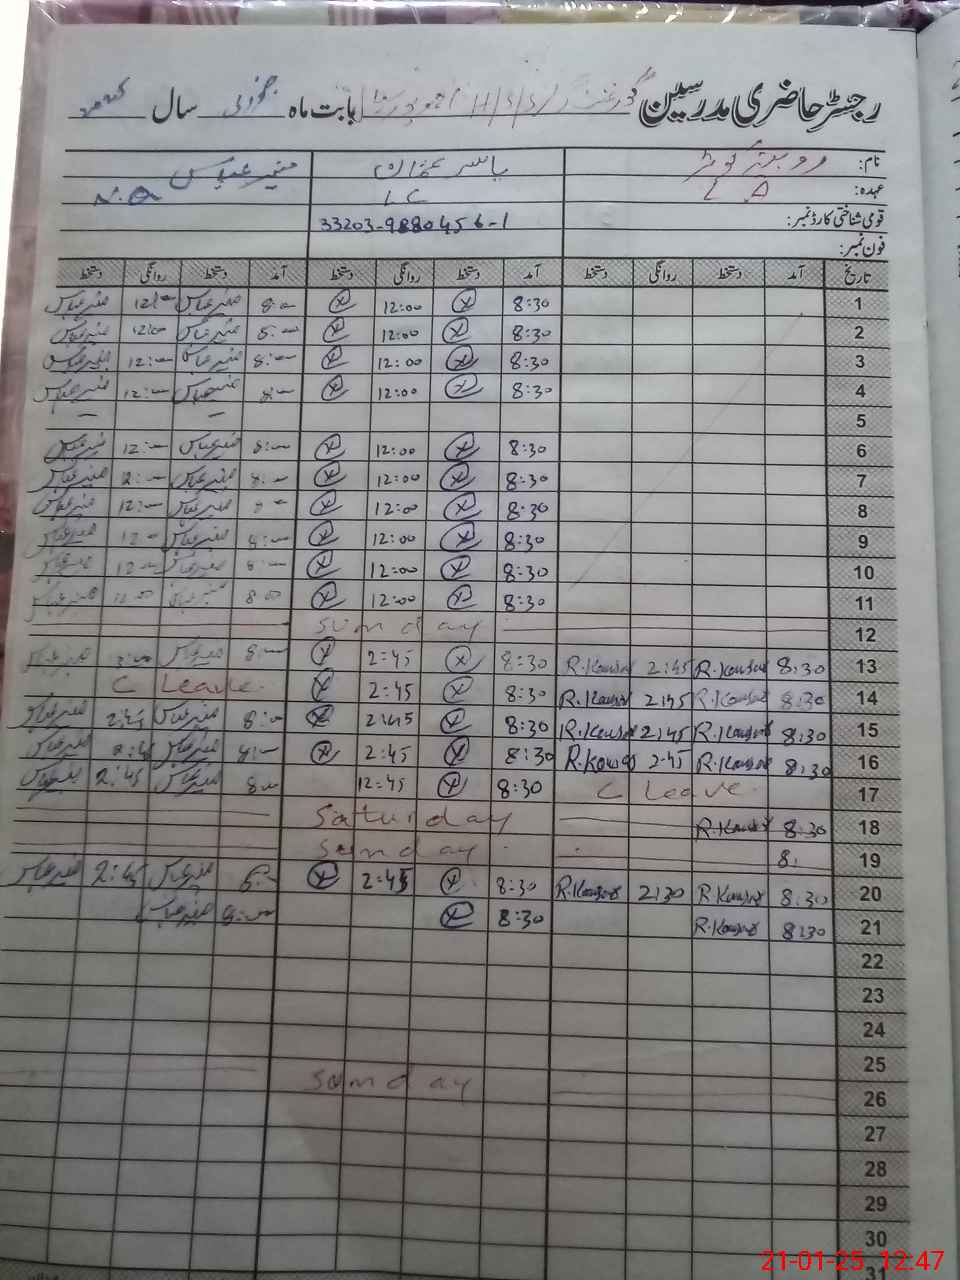 رجسٹر حاضری مدرسین گورنمنٹ بابت ماہ جنوری سال
نام: روبینہ کوثر یاسر عمران منیر عباس
عہدہ: L.A L C N.Q
قومی شناختی کارڈ نمبر: 33203-9880456-1
فون نمبر:
تاریخ آمد دستخط روانگی دستخط آمد دستخط روانگی دستخط آمد دستخط روانگی دستخط
1 8:30 12:00 8:00 منیر عباس 12:00 منیر عباس
2 8:30 12:00 8:00 منیر عباس 12:00 منیر عباس
3 8:30 12:00 8:00 منیر عباس 12:00 منیر عباس
4 8:30 12:00 8:00 منیر عباس 12:00 منیر عباس
5 – –
6 8:30 12:00 8:00 منیر عباس 12:00 منیر عباس
7 8:30 12:00 8:00 منیر عباس 12:00 منیر عباس
8 8:30 12:00 8:00 منیر عباس 12:00 منیر عباس
9 8:30 12:00 8:00 منیر عباس 12:00 منیر عباس
10 8:30 12:00 8:00 منیر عباس 12:00 منیر عباس
11 8:30 12:00 8:00 منیر عباس 12:00 منیر عباس
12 Sunday
13 8:30 R.Kousar 2:45 R.Kousar 8:30 2:45 8:00 منیر عباس منیر عباس
14 8:30 R.Kousar 2:45 R.Kousar 8:30 2:45 C Leave
15 8:30 R.Kousar 2:45 R.Kousar 8:30 2:45 8:00 منیر عباس 2:45 منیر عباس
16 8:30 R.Kousar 2:45 R.Kousar 8:30 2:45 8:00 منیر عباس 2:45 منیر عباس
17 C Leave 8:30 12:45 8:00 منیر عباس 2:45 منیر عباس
18 8:30 R.Kousar Saturday
19 8: Sunday
20 8:30 R.Kousar 2:30 R.Kousar 8:30 2:45 8:00 منیر عباس 2:45 منیر عباس
21 8:30 R.Kousar 8:30 8:00 منیر عباس
22
23
24
25
26 Sunday
27
28
29
30
31
21-01-25 12:47